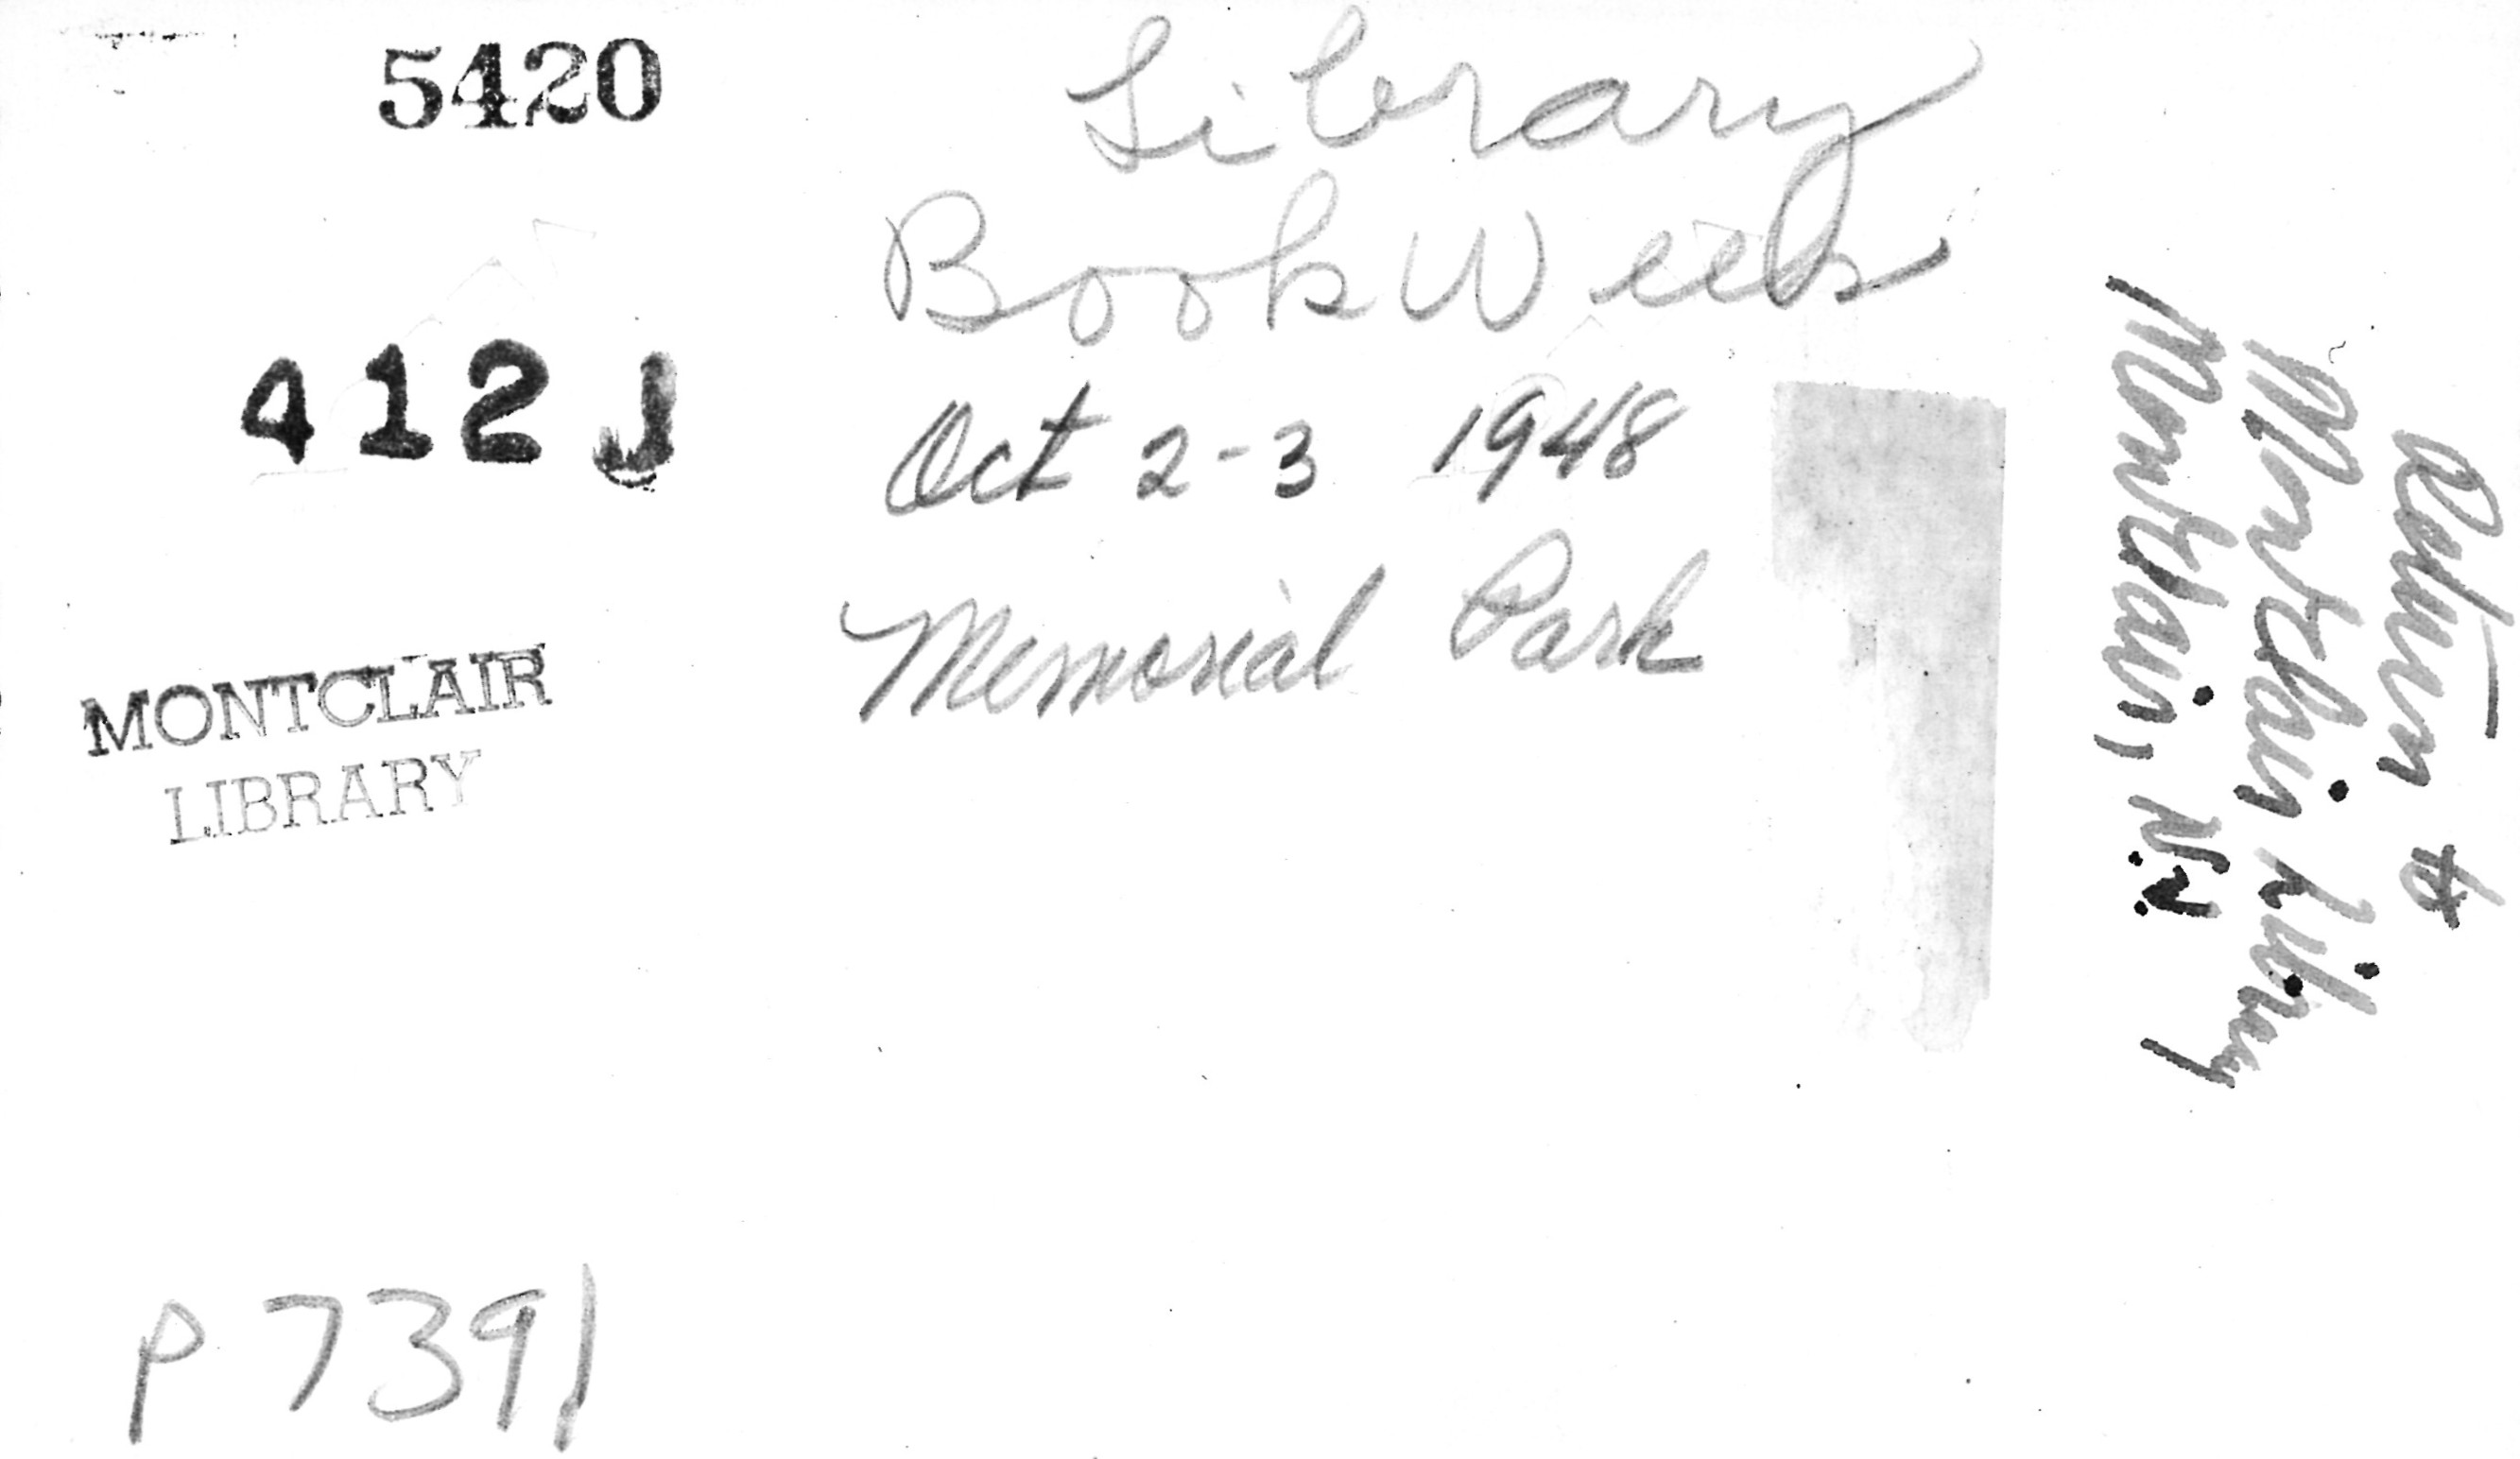 5420
Library
Book Week
Oct 2-3 1948
Memorial Park
412J
MONTCLAIR
LIBRARY
P 7391
Return to
Montclair Library
Montclair, N.J.